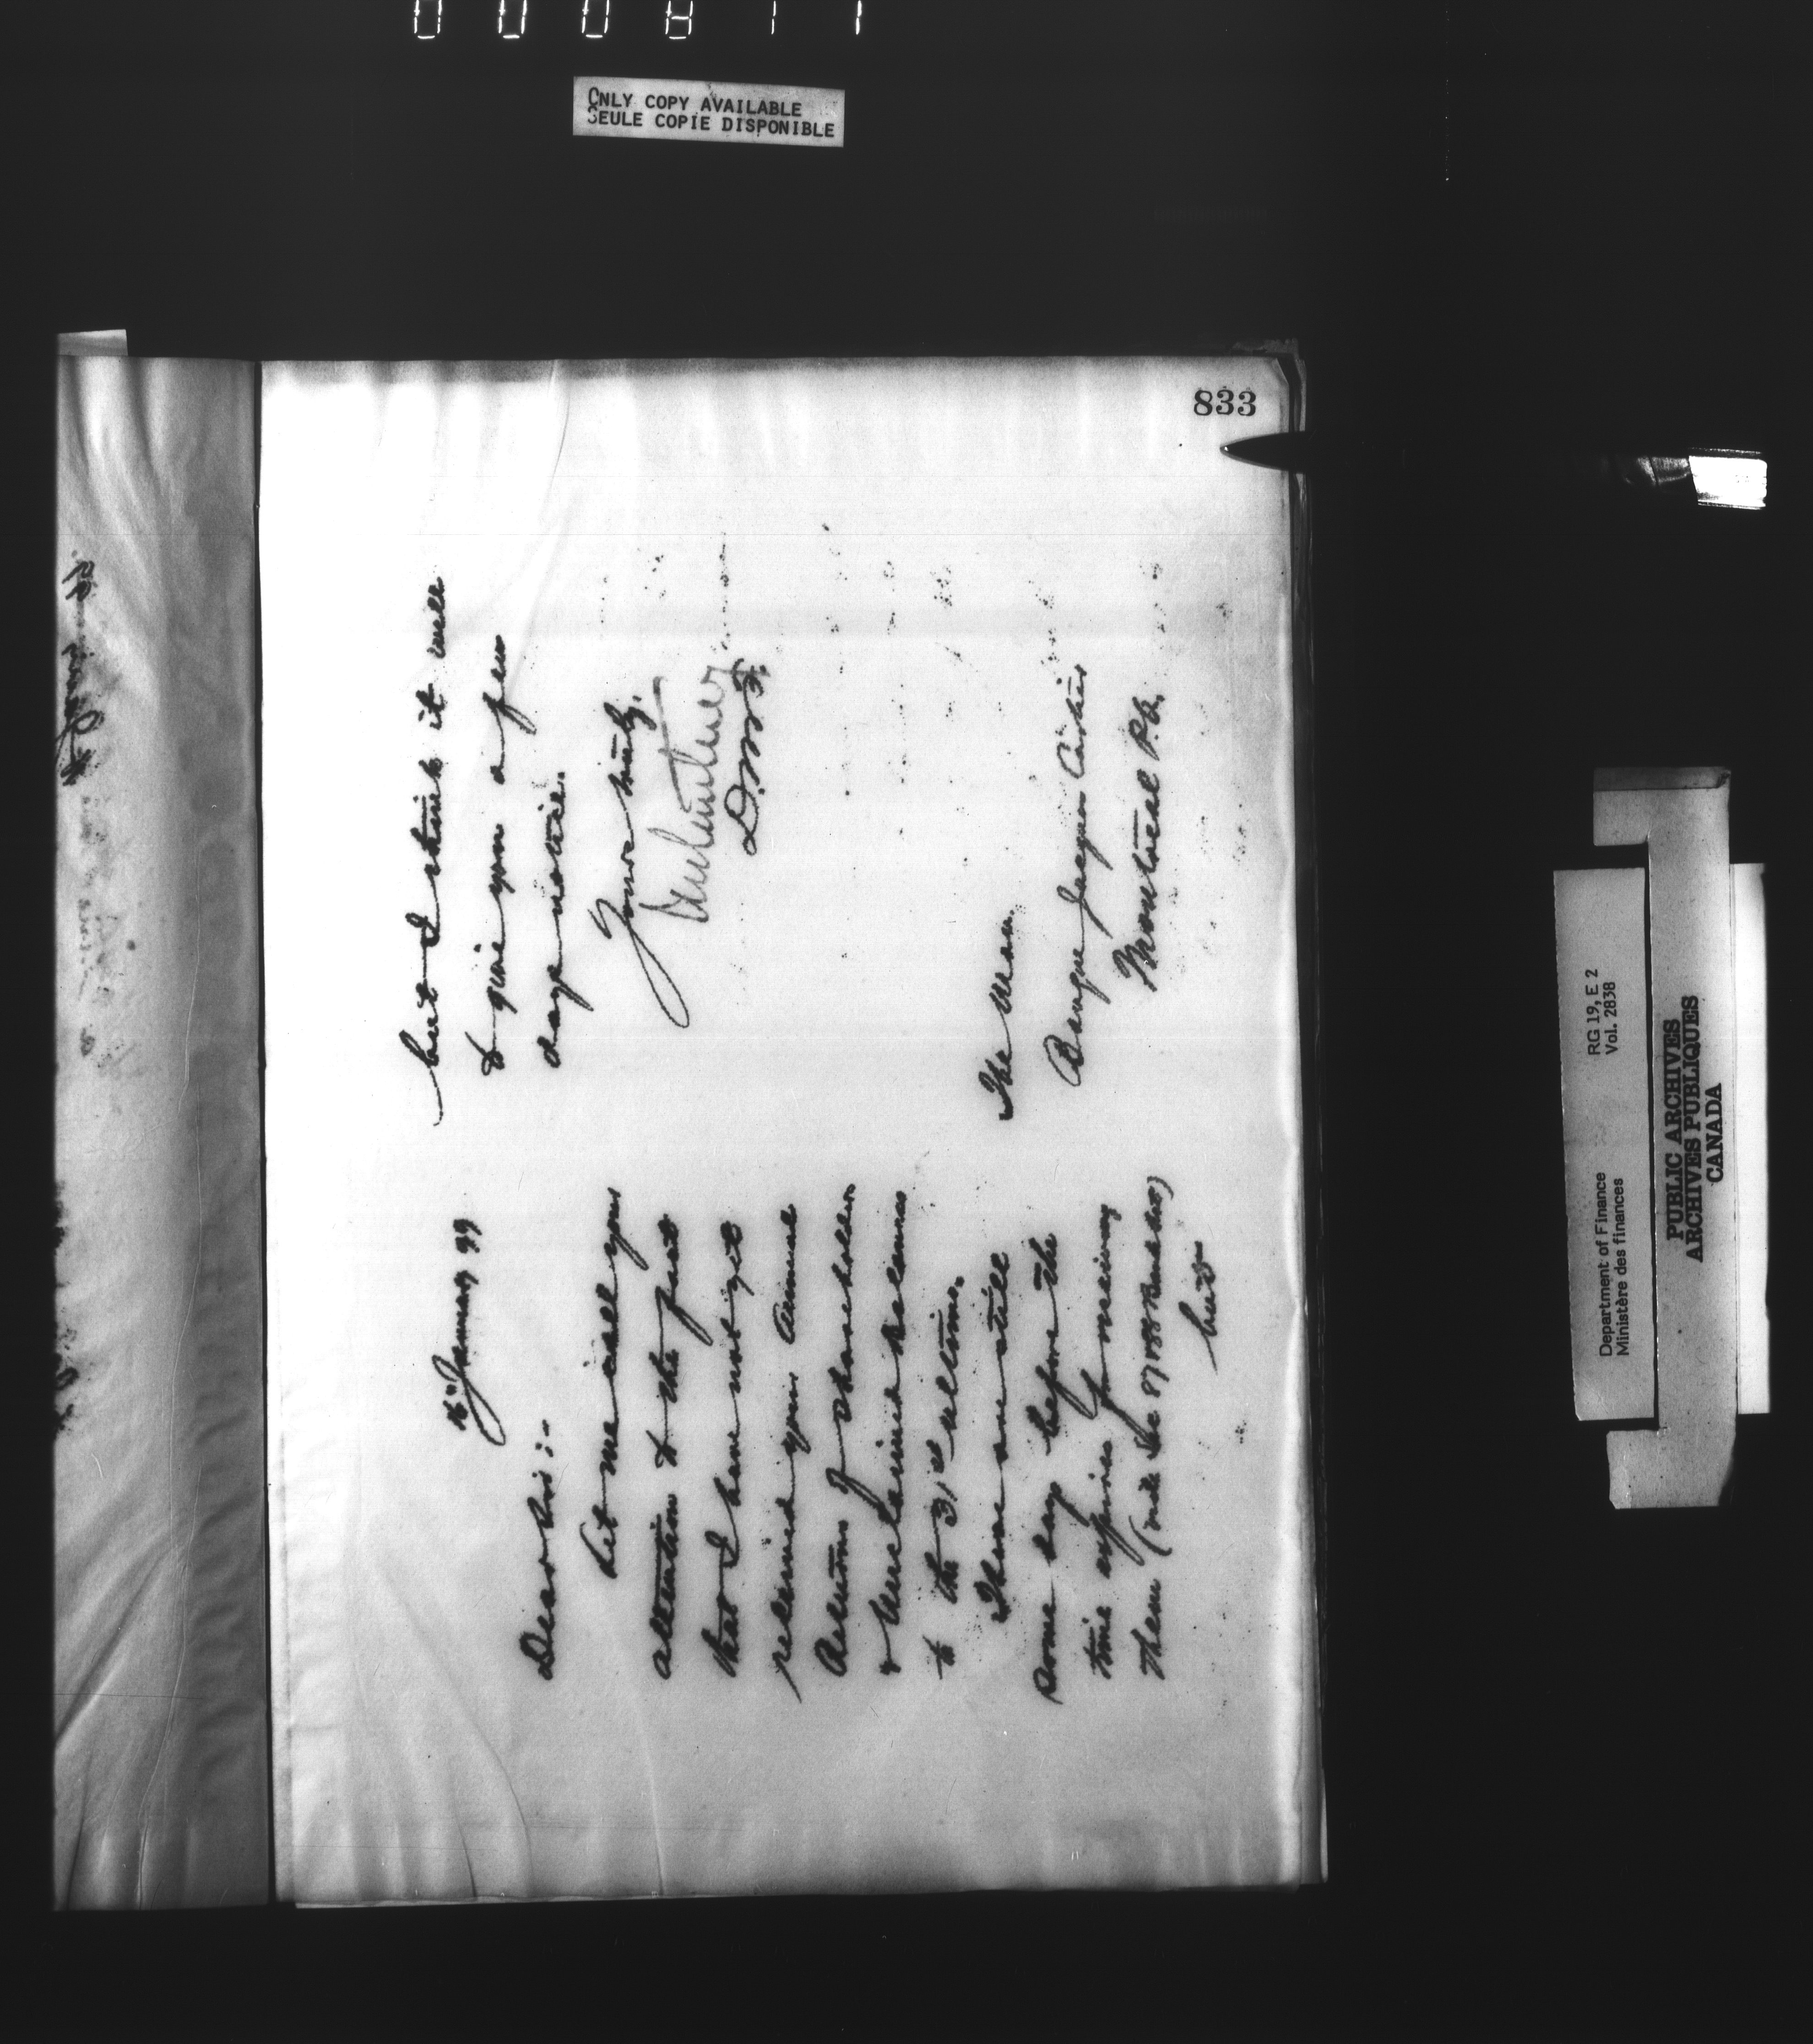 000811
ONLY COPY AVAILABLE
SEULE COPIE DISPONIBLE
833
16" January 99
Dear Sir:-
Let me call your
attention to the fact
that I have not yet
received your Annual
Returns of Shareholders
& Unclaimed balances
to the 31st ultimo.
There are still
some days before the
time expires for receiving
them (vide Sec 87 & 88 Bank Act)
but
but I think it well
to give you a few
days notice.
Yours truly,
D.M.F.
The Man.
Banque Jacques Cartier
Montreal P.Q.
Department of Finance
Ministère des finances
RG 19, E 2
Vol. 2838
PUBLIC ARCHIVES
ARCHIVES PUBLIQUES
CANADA